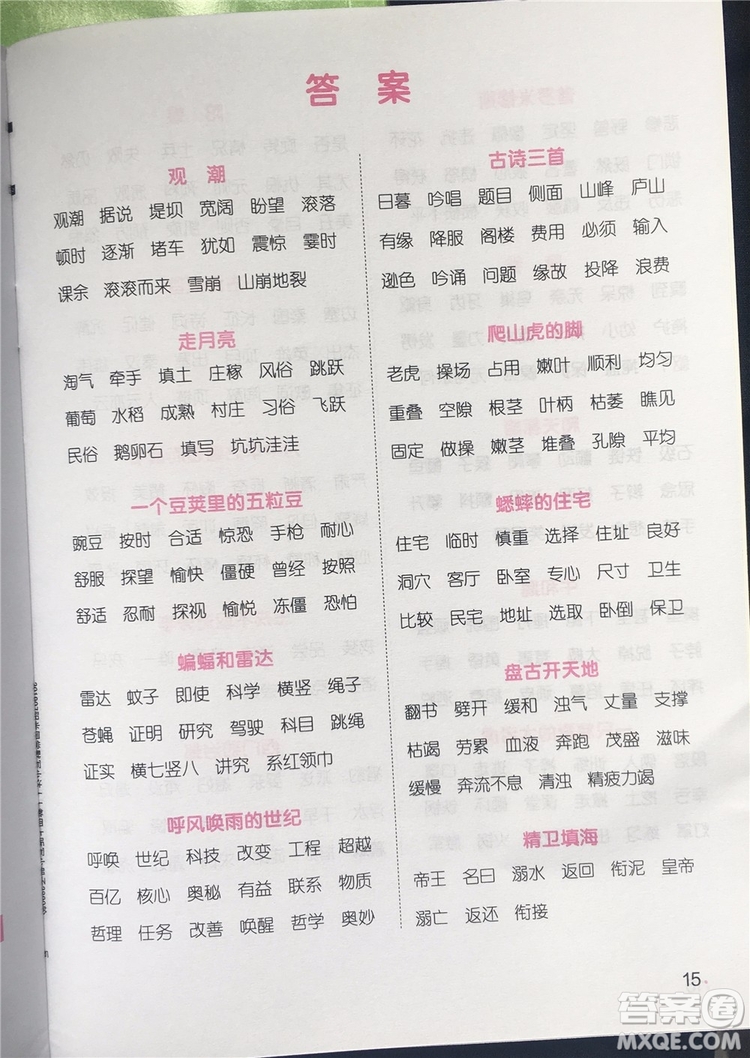 答 案
观 潮
观潮 据说 堤坝 宽阔 盼望 滚落
顿时 逐渐 堵车 犹如 震惊 霎时
课余 滚滚而来 雪崩 山崩地裂
走月亮
淘气 牵手 填土 庄稼 风俗 跳跃
葡萄 水稻 成熟 村庄 习俗 飞跃
民俗 鹅卵石 填写 坑坑洼洼
一个豆荚里的五粒豆
豌豆 按时 合适 惊恐 手枪 耐心
舒服 探望 愉快 僵硬 曾经 按照
舒适 忍耐 探视 愉悦 冻僵 恐怕
蝙蝠和雷达
雷达 蚊子 即使 科学 横竖 绳子
苍蝇 证明 研究 驾驶 科目 跳绳
证实 横七竖八 讲究 系红领巾
呼风唤雨的世纪
呼唤 世纪 科技 改变 工程 超越
百亿 核心 奥秘 有益 联系 物质
哲理 任务 改善 唤醒 哲学 奥妙
古诗三首
日暮 吟唱 题目 侧面 山峰 庐山
有缘 降服 阁楼 费用 必须 输入
逊色 吟诵 问题 缘故 投降 浪费
爬山虎的脚
老虎 操场 占用 嫩叶 顺利 均匀
重叠 空隙 根茎 叶柄 枯萎 瞧见
固定 做操 嫩茎 堆叠 孔隙 平均
蟋蟀的住宅
住宅 临时 慎重 选择 住址 良好
洞穴 客厅 卧室 专心 尺寸 卫生
比较 民宅 地址 选取 卧倒 保卫
盘古开天地
翻书 劈开 缓和 浊气 丈量 支撑
枯竭 劳累 血液 奔跑 茂盛 滋味
缓慢 奔流不息 清浊 精疲力竭
精卫填海
帝王 名曰 溺水 返回 衔泥 皇帝
溺亡 返还 衔接
15
答案圈
MXQE.COM